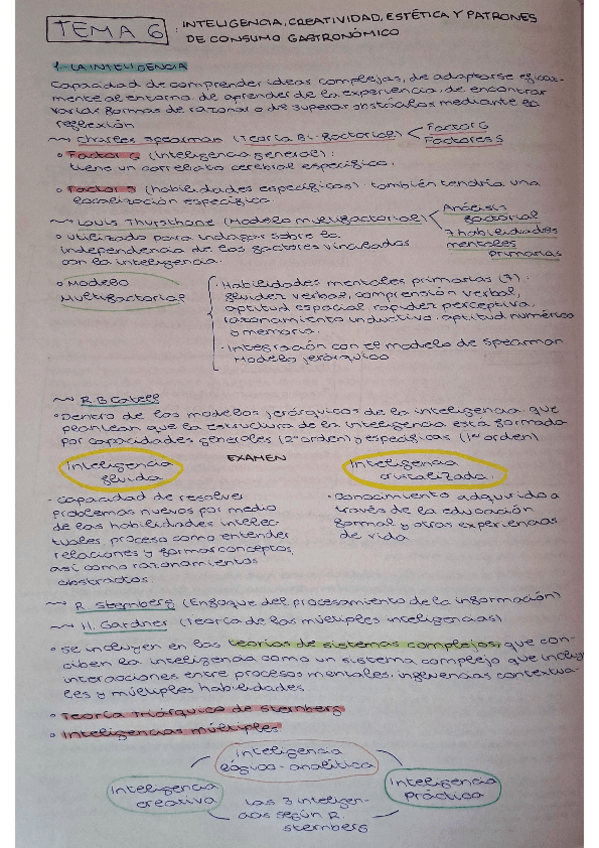 TEMA 6 : INTELIGENCIA, CREATIVIDAD, ESTÉTICA Y PATRONES
DE CONSUMO GASTRONÓMICO
1. LA INTELIGENCIA
Capacidad de comprender ideas complejas, de adaptarse eficaz-
mente al entorno, de aprender de la experiencia, de encontrar
varias formas de razonar o de superar obstáculos mediante la
reflexión
~ Charles Spearman (Teoría Bi-factorial) < Factor G
Factores S
° Factor G (inteligencia general):
tiene un correlato cerebral específico.
° Factor S (habilidades específicas). también tendría una
localización específica.
~ Louis Thursthone (Modelo multifactorial) < Análisis
factorial
7 habilidades
mentales
primarias
° utilizado para indagar sobre la
independencia de los factores vinculados
con la inteligencia.
° Modelo
Multifactorial
· Habilidades mentales primarias (7):
fluidez verbal, comprensión verbal,
aptitud espacial, rapidez perceptiva,
razonamiento inductivo, aptitud numérica
o memoria.
· Integración con el modelo de Spearman
Modelo jerárquico
~ R.B Catell
° Dentro de los modelos jerárquicos de la inteligencia que
plantean que la estructura de la inteligencia está formada
por capacidades generales (2º orden) y específicas (1er orden)
Inteligencia
fluida
EXAMEN
Inteligencia
cristalizada.
· capacidad de resolver
problemas nuevos por medio
de las habilidades intelec-
tuales, proceso como entender
relaciones y formar conceptos,
así como razonamientos
abstractos.
· conocimiento adquirido a
través de la educación
formal y otras experiencias
de vida
~ R. Sternberg (Enfoque del procesamiento de la información)
~ H. Gardner (Teoría de las múltiples inteligencias)
° se incluyen en las teorías de sistemas complejos, que con-
ciben la inteligencia como un sistema complejo que incluye
interacciones entre procesos mentales, influencias contextua-
les y múltiples habilidades.
° Teoría Triárquica de Sternberg
° Inteligencias múltiples
Inteligencia
lógico-analítica
Inteligencia
creativa
Inteligencia
práctica
Las 3 inteligen-
cias según R.
Sternberg